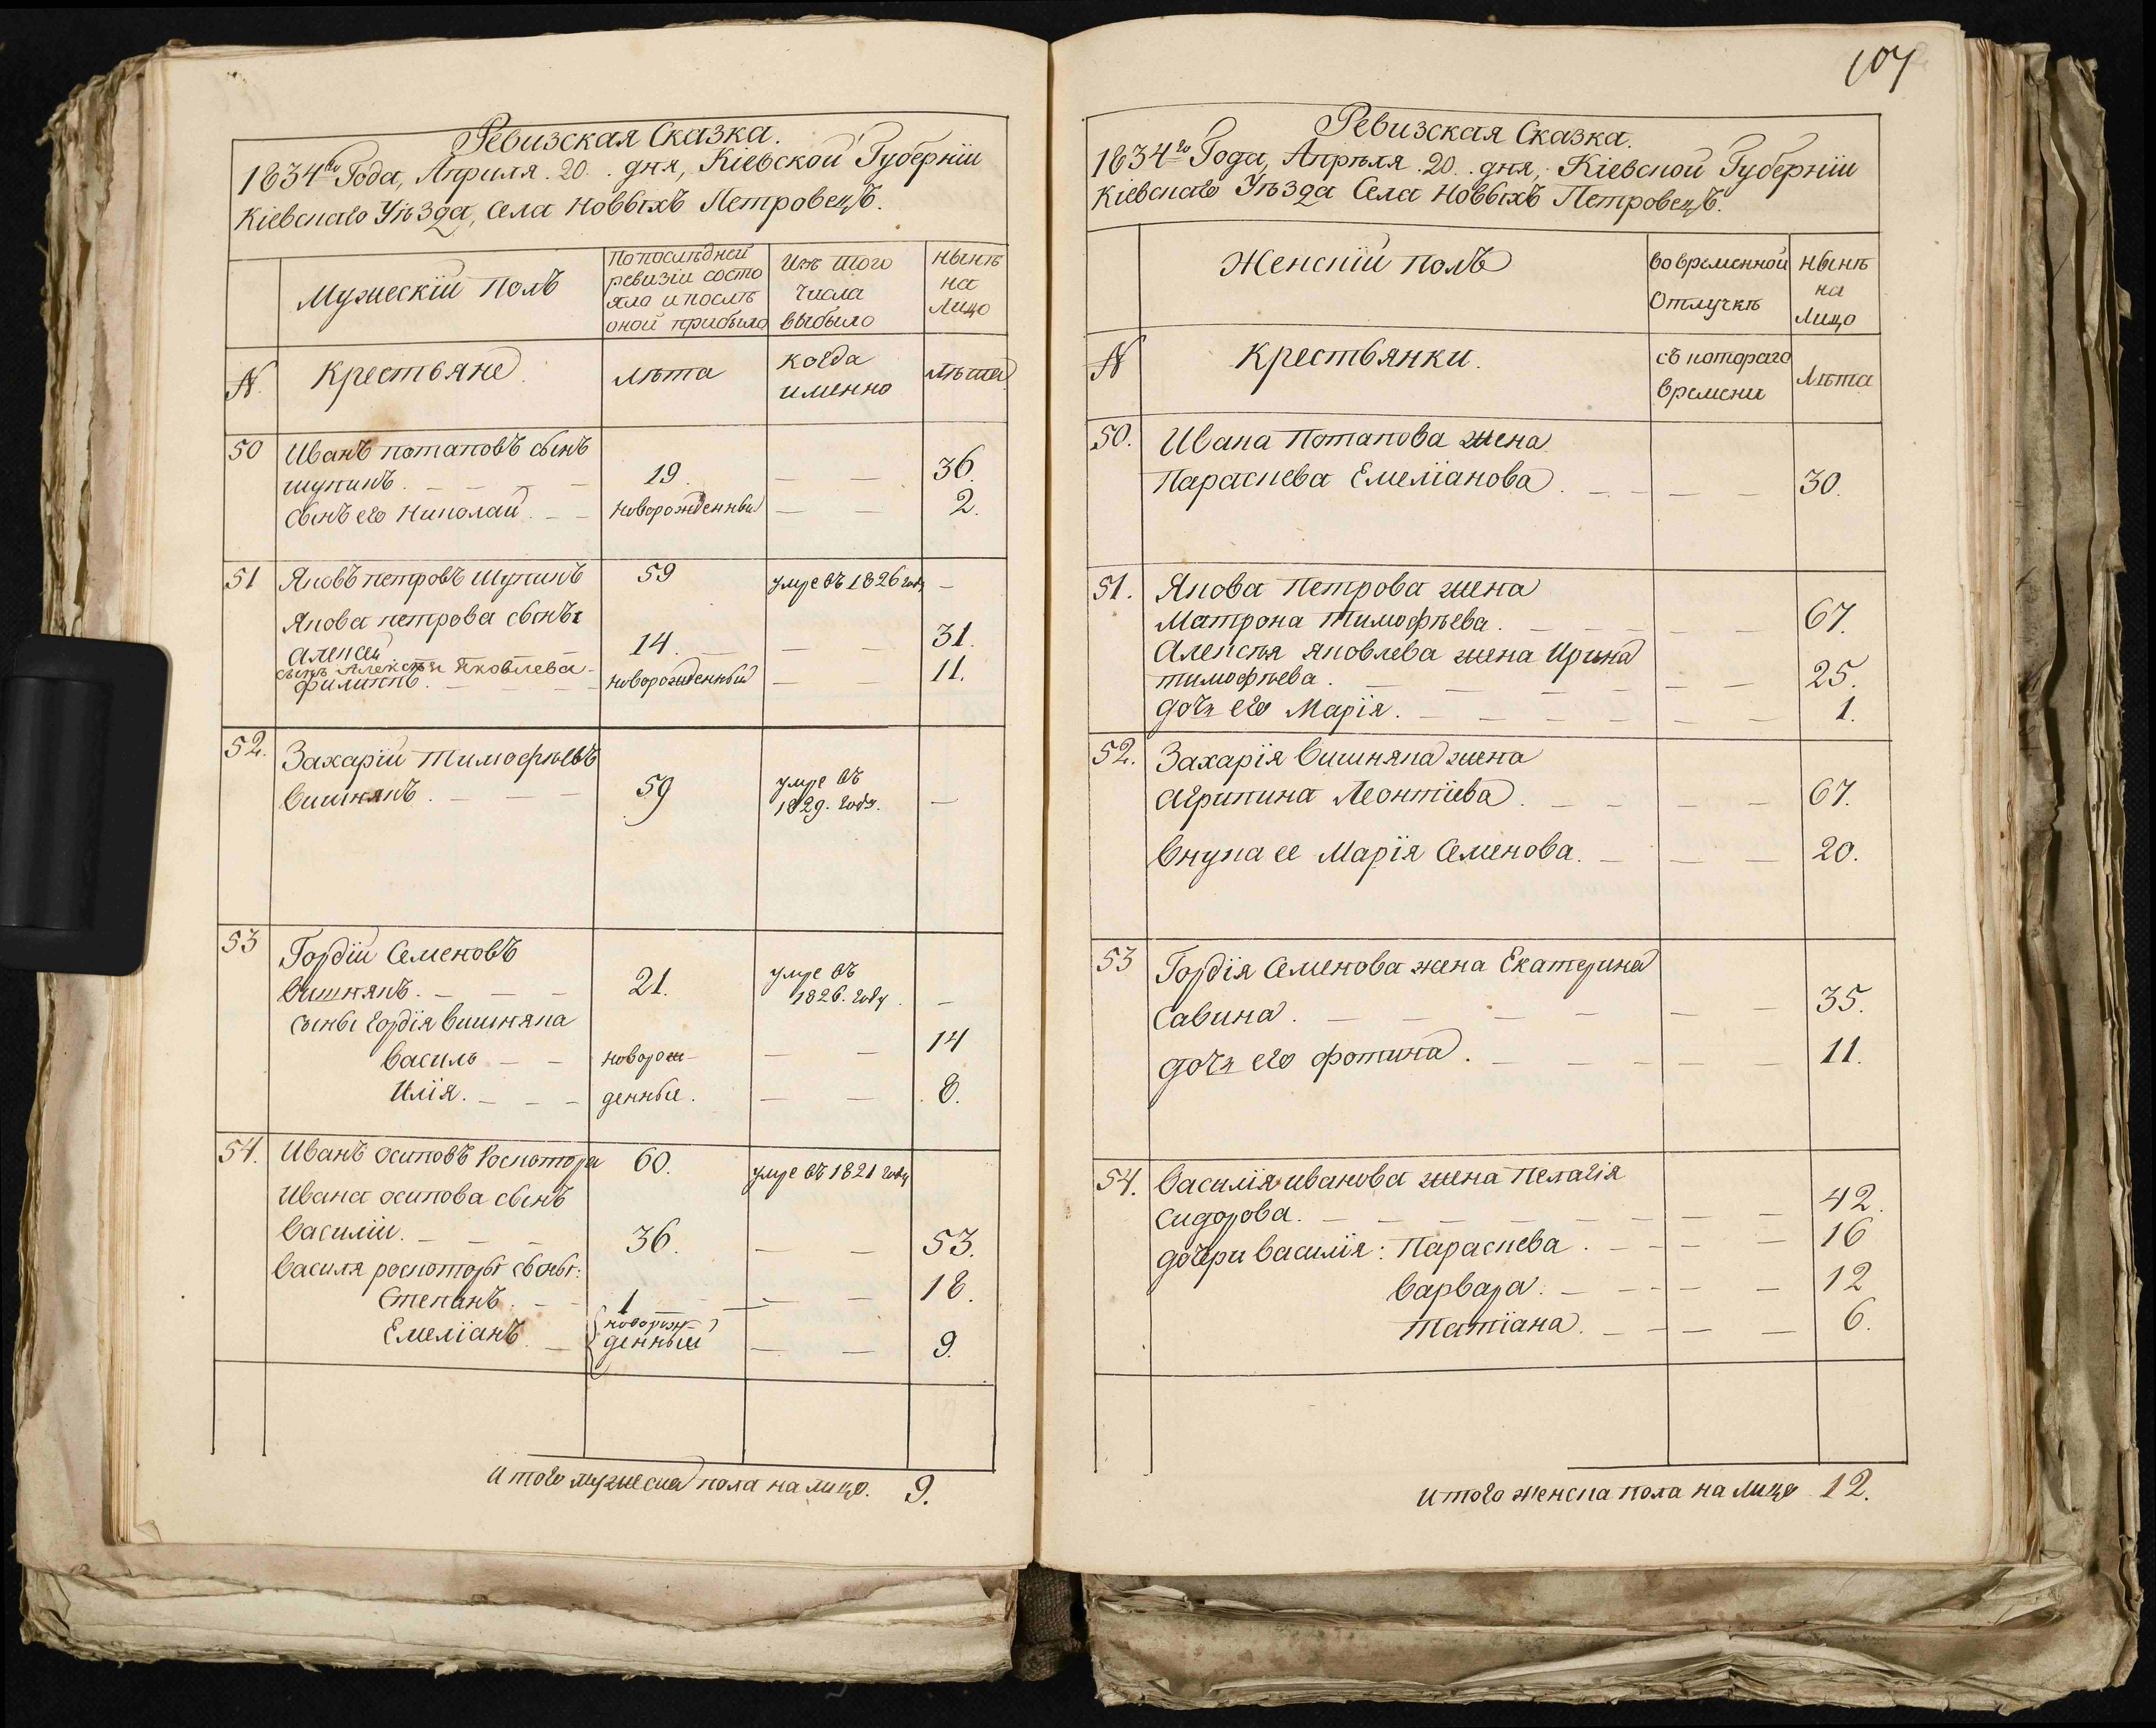 Ревизская Сказка.
1834го Года, Априля. 20. дня, Кіевской Губерніи
Кіевскаго Уѣзда, села Новвыхъ Петровецъ.
Мужескій полъ
Попослѣдней
ревизіи состо
яло и послѣ
оной прибыло
Изъ того
числа
выбыло
нынѣ
на
Лицо
№.
Крестьяне
лѣта
когда
именно
лѣта
50
Иванъ потаповъ сынъ
шупикъ. 19. 36.
сынъ его Николай новорожденный 2.
51
Яковъ петровъ шупикъ 59 умре въ 1826 году
Якова петрова сынъ
Алексей 14. 31.
сынъ Алексѣя Яковлева
филиппъ. новорожденный 11.
52.
Захарій тимофѣевъ
вишнякъ. 59 умре въ
1829. году.
53
Гордій Семеновъ
вишнякъ. 21. умре въ
1826. году.
сыны гордія вишняка
василь новорож- 14
илія. денные. 8.
54.
Иванъ осиповъ Роскотора 60. умре въ 1821 году
Ивана осипова сынъ
василіи. 36. 53.
василя роскоторы сыны:
Степанъ. 1 18.
Емеліанъ. новорож-
денный 9.
Итого мужеска пола на лицо. 9.
107
Ревизская Сказка.
1834го Года, Апрѣля 20. дня, Кіевской Губерніи
Кіевскаго Уѣзда Села Новвыхъ Петровецъ.
Женскій полъ
во временной
Отлучкѣ
нынѣ
на
Лицо
№
Крестьянки.
съ котораго
времени
Лѣта
50.
Ивана Потапова жена
Параскева Емеліанова. 30.
51.
Якова Петрова жена
Матрона тимофѣева. 67.
Алексѣя яковлева жена Ирина
тимофѣева. 25.
дочь его Марія. 1.
52.
Захарія вишняка жена
Агрипина Леонтіева. 67.
внука ее Марія Семенова. 20.
53
Гордія Семенова жена Екатерина
Савина. 35.
дочь его фотина. 11.
54.
василія иванова жена пелагія
сидорова. 42.
дочери василія: Параскева. 16
варвара. 12
татіана. 6.
итого женска пола на лицо 12.